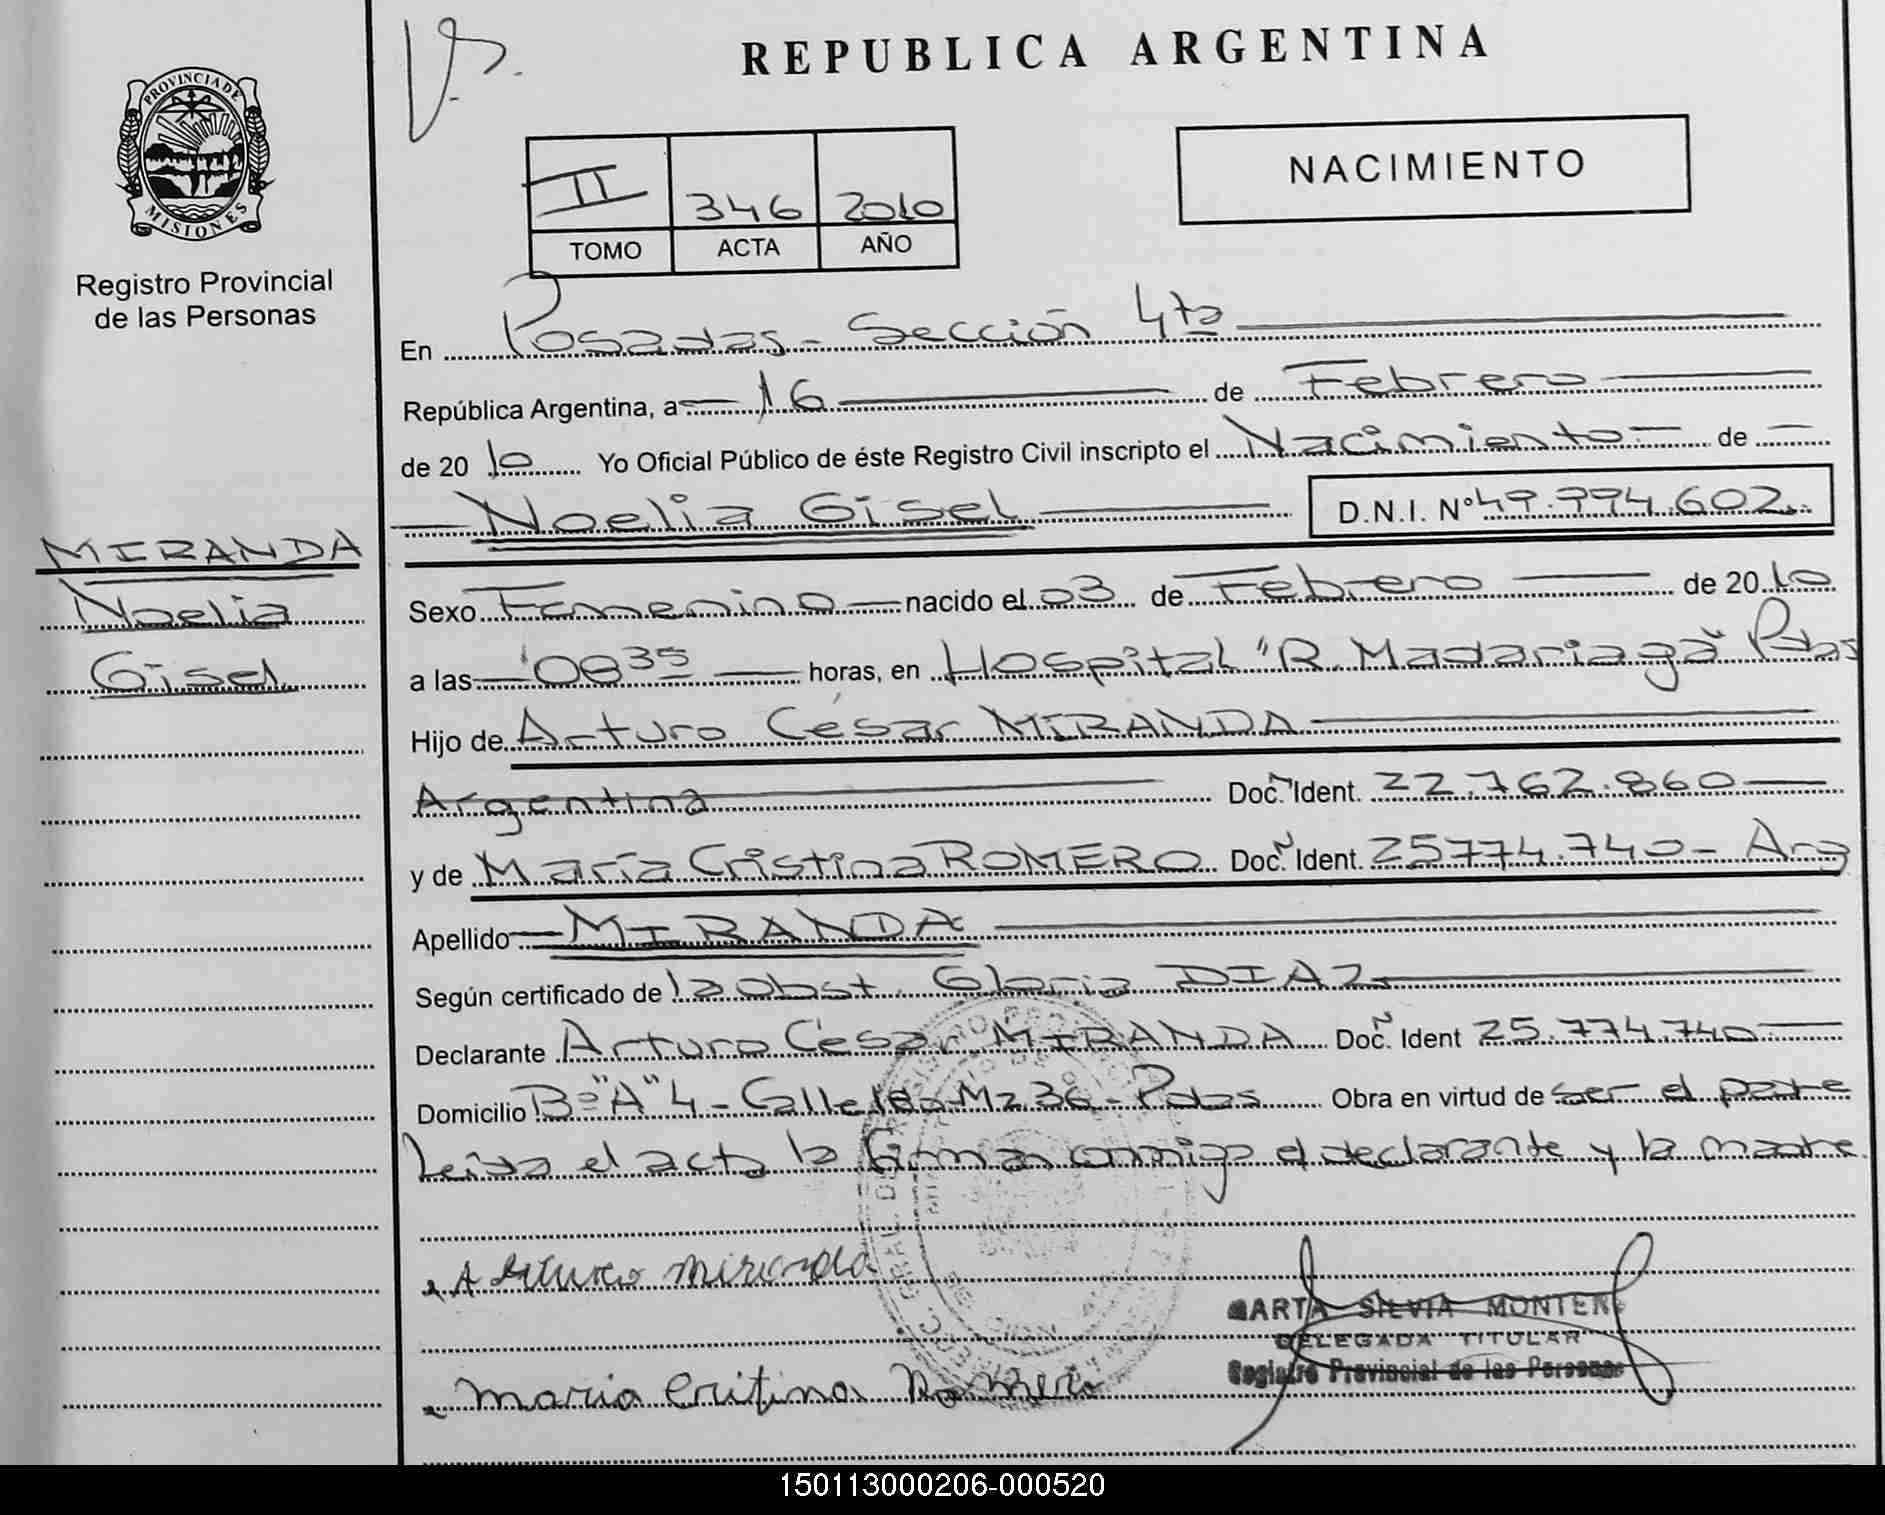 V.S.
REPUBLICA ARGENTINA
PROVINCIA DE MISIONES
Registro Provincial
de las Personas
II 346 2010
TOMO ACTA AÑO
NACIMIENTO
En Posadas - Sección 4ta
República Argentina, a 16 de Febrero
de 2010 Yo Oficial Público de éste Registro Civil inscripto el Nacimiento de
Noelia Gisel D.N.I. Nº 49.994.602.
MIRANDA
Noelia
Gisel
Sexo Femenino nacido el 03 de Febrero de 2010
a las 08 35 horas, en Hospital "R. Madariaga" Pdas
Hijo de Arturo César MIRANDA
Argentina Doc. Ident. 22.762.860
y de María Cristina ROMERO Doc. Ident. 25774.740 - Arg
Apellido MIRANDA
Según certificado de la Obst. Gloria DIAZ
Declarante Arturo César MIRANDA Doc. Ident 25.774.740
Domicilio Bº "A" 4 - Calle Mz 36 - Pdas Obra en virtud de ser el padre
Leida el acta la firman conmigo el declarante y la madre.
Arturo Miranda
MARTA SILVIA MONTEN
DELEGADA TITULAR
Registro Provincial de las Personas
Maria Critina Romero
150113000206-000520